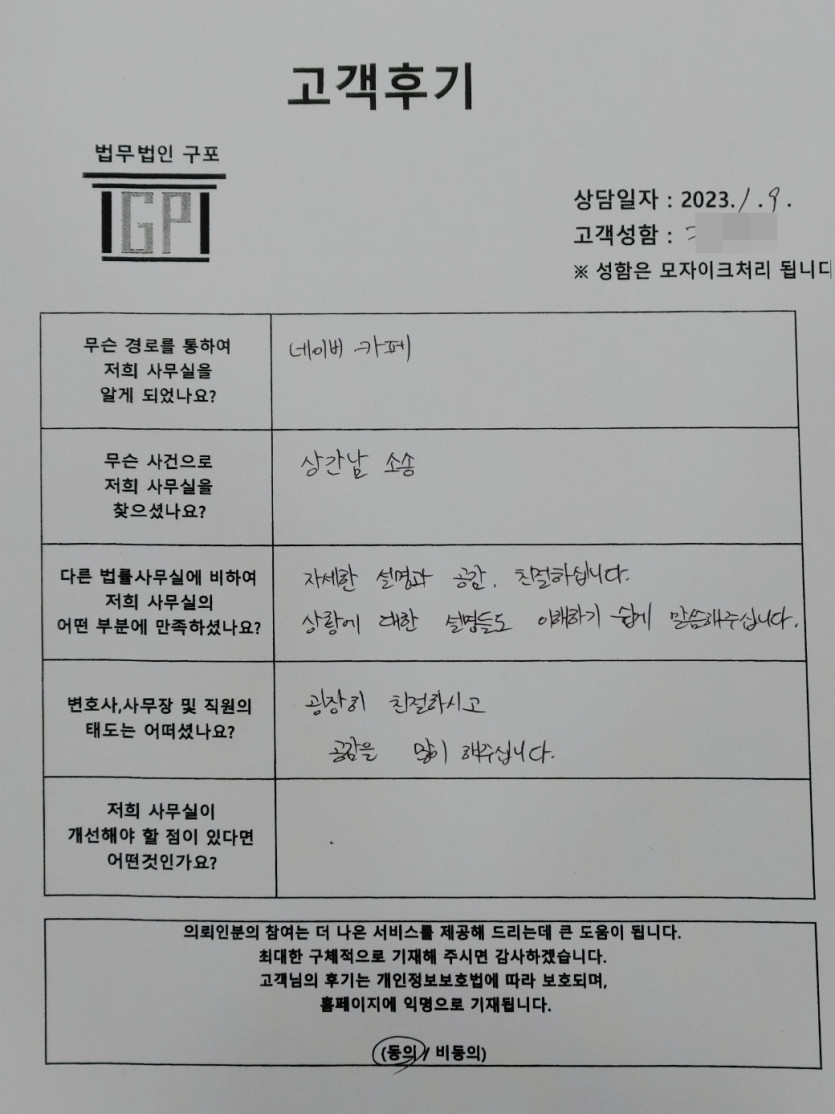 고객후기
법무법인 구포
GP
상담일자 : 2023. 1. 9.
고객성함 :
※ 성함은 모자이크처리 됩니다
무슨 경로를 통하여
저희 사무실을
알게 되었나요?
네이버 카페
무슨 사건으로
저희 사무실을
찾으셨나요?
상간남 소송
다른 법률사무실에 비하여
저희 사무실의
어떤 부분에 만족하셨나요?
자세한 설명과 공감. 친절하십니다.
상황에 대한 설명들도 이해하기 쉽게 말씀해주십니다.
변호사,사무장 및 직원의
태도는 어떠셨나요?
굉장히 친절하시고
공감을 많이 해주십니다.
저희 사무실이
개선해야 할 점이 있다면
어떤것인가요?
의뢰인분의 참여는 더 나은 서비스를 제공해 드리는데 큰 도움이 됩니다.
최대한 구체적으로 기재해 주시면 감사하겠습니다.
고객님의 후기는 개인정보보호법에 따라 보호되며,
홈페이지에 익명으로 기재됩니다.
(동의 / 비동의)